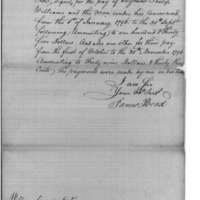 for the pay of Serjeant
Williams and the men under his command
from the 1st of January 1796 to the 30th Septr
following, Amounting to one hundred & thirty
five Dollars. And also one other for their pay
from the first of October to the 30th November 1796
Amounting to Forty nine Dollars & thirty three
Cents; the payments were made by me in
I am Sir
Your Obt Servt
James Mead